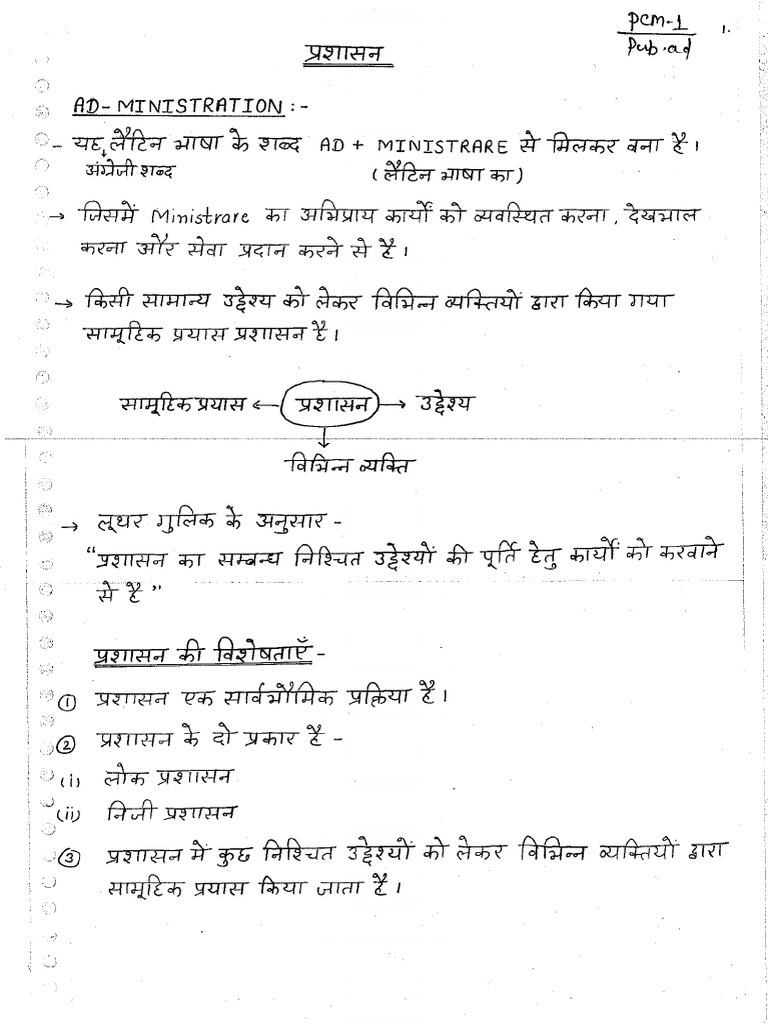 PCM-1
Pub.ad
1.
प्रशासन
AD-MINISTRATION :-
- यह लैटिन भाषा के शब्द AD + MINISTRARE से मिलकर बना है।
अंग्रेजी शब्द (लैटिन भाषा का)
→ जिसमें Ministrare का अभिप्राय कार्यों को व्यवस्थित करना, देखभाल
करना और सेवा प्रदान करने से है।
→ किसी सामान्य उद्देश्य को लेकर विभिन्न व्यक्तियों द्वारा किया गया
सामूहिक प्रयास प्रशासन है।
सामूहिक प्रयास ← प्रशासन → उद्देश्य
↓
विभिन्न व्यक्ति
→ लूथर गुलिक के अनुसार -
"प्रशासन का सम्बन्ध निश्चित उद्देश्यों की पूर्ति हेतु कार्यों को करवाने
से है"
प्रशासन की विशेषताएँ -
① प्रशासन एक सार्वभौमिक प्रक्रिया है।
② प्रशासन के दो प्रकार है -
(i) लोक प्रशासन
(ii) निजी प्रशासन
③ प्रशासन में कुछ निश्चित उद्देश्यों को लेकर विभिन्न व्यक्तियों द्वारा
सामूहिक प्रयास किया जाता है।